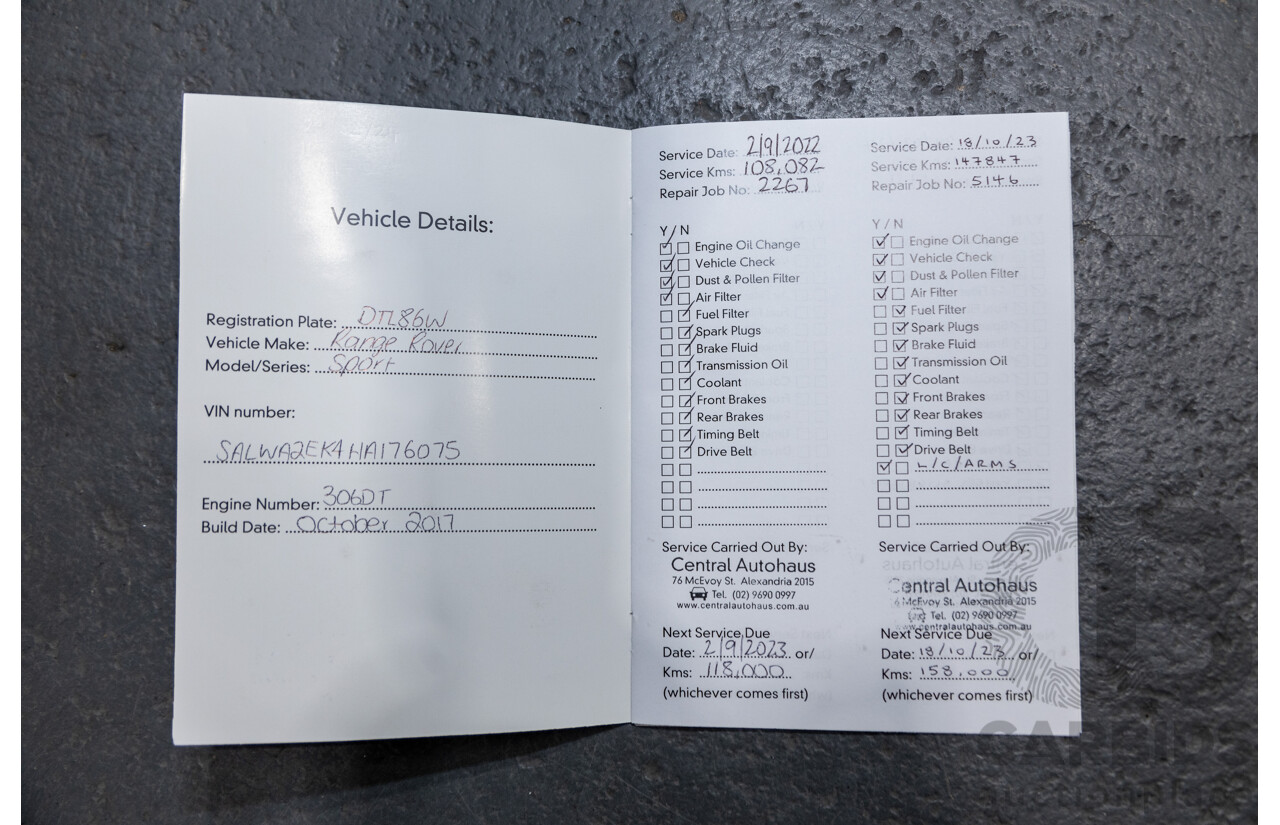 Vehicle Details:
Registration Plate: DTL86W
Vehicle Make: Range Rover
Model/Series: Sport
VIN number:
SALWA2EK4HA176075
Engine Number: 306DT
Build Date: October 2017
Service Date: 2/9/2022
Service Kms: 108,082
Repair Job No: 2267
Y / N
Engine Oil Change
Vehicle Check
Dust & Pollen Filter
Air Filter
Fuel Filter
Spark Plugs
Brake Fluid
Transmission Oil
Coolant
Front Brakes
Rear Brakes
Timing Belt
Drive Belt
Service Carried Out By:
Central Autohaus
76 McEvoy St. Alexandria 2015
Tel. (02) 9690 0997
www.centralautohaus.com.au
Next Service Due
Date: 2/9/2023 or/
Kms: 118,000
(whichever comes first)
Service Date: 18/10/23
Service Kms: 147847
Repair Job No: 5146
Y / N
Engine Oil Change
Vehicle Check
Dust & Pollen Filter
Air Filter
Fuel Filter
Spark Plugs
Brake Fluid
Transmission Oil
Coolant
Front Brakes
Rear Brakes
Timing Belt
Drive Belt
L/C/ARMS
Service Carried Out By:
Central Autohaus
6 McEvoy St. Alexandria 2015
Tel. (02) 9690 0997
www.centralautohaus.com.au
Next Service Due
Date: 18/10/23 or/
Kms: 158,000
(whichever comes first)
CARBIDS